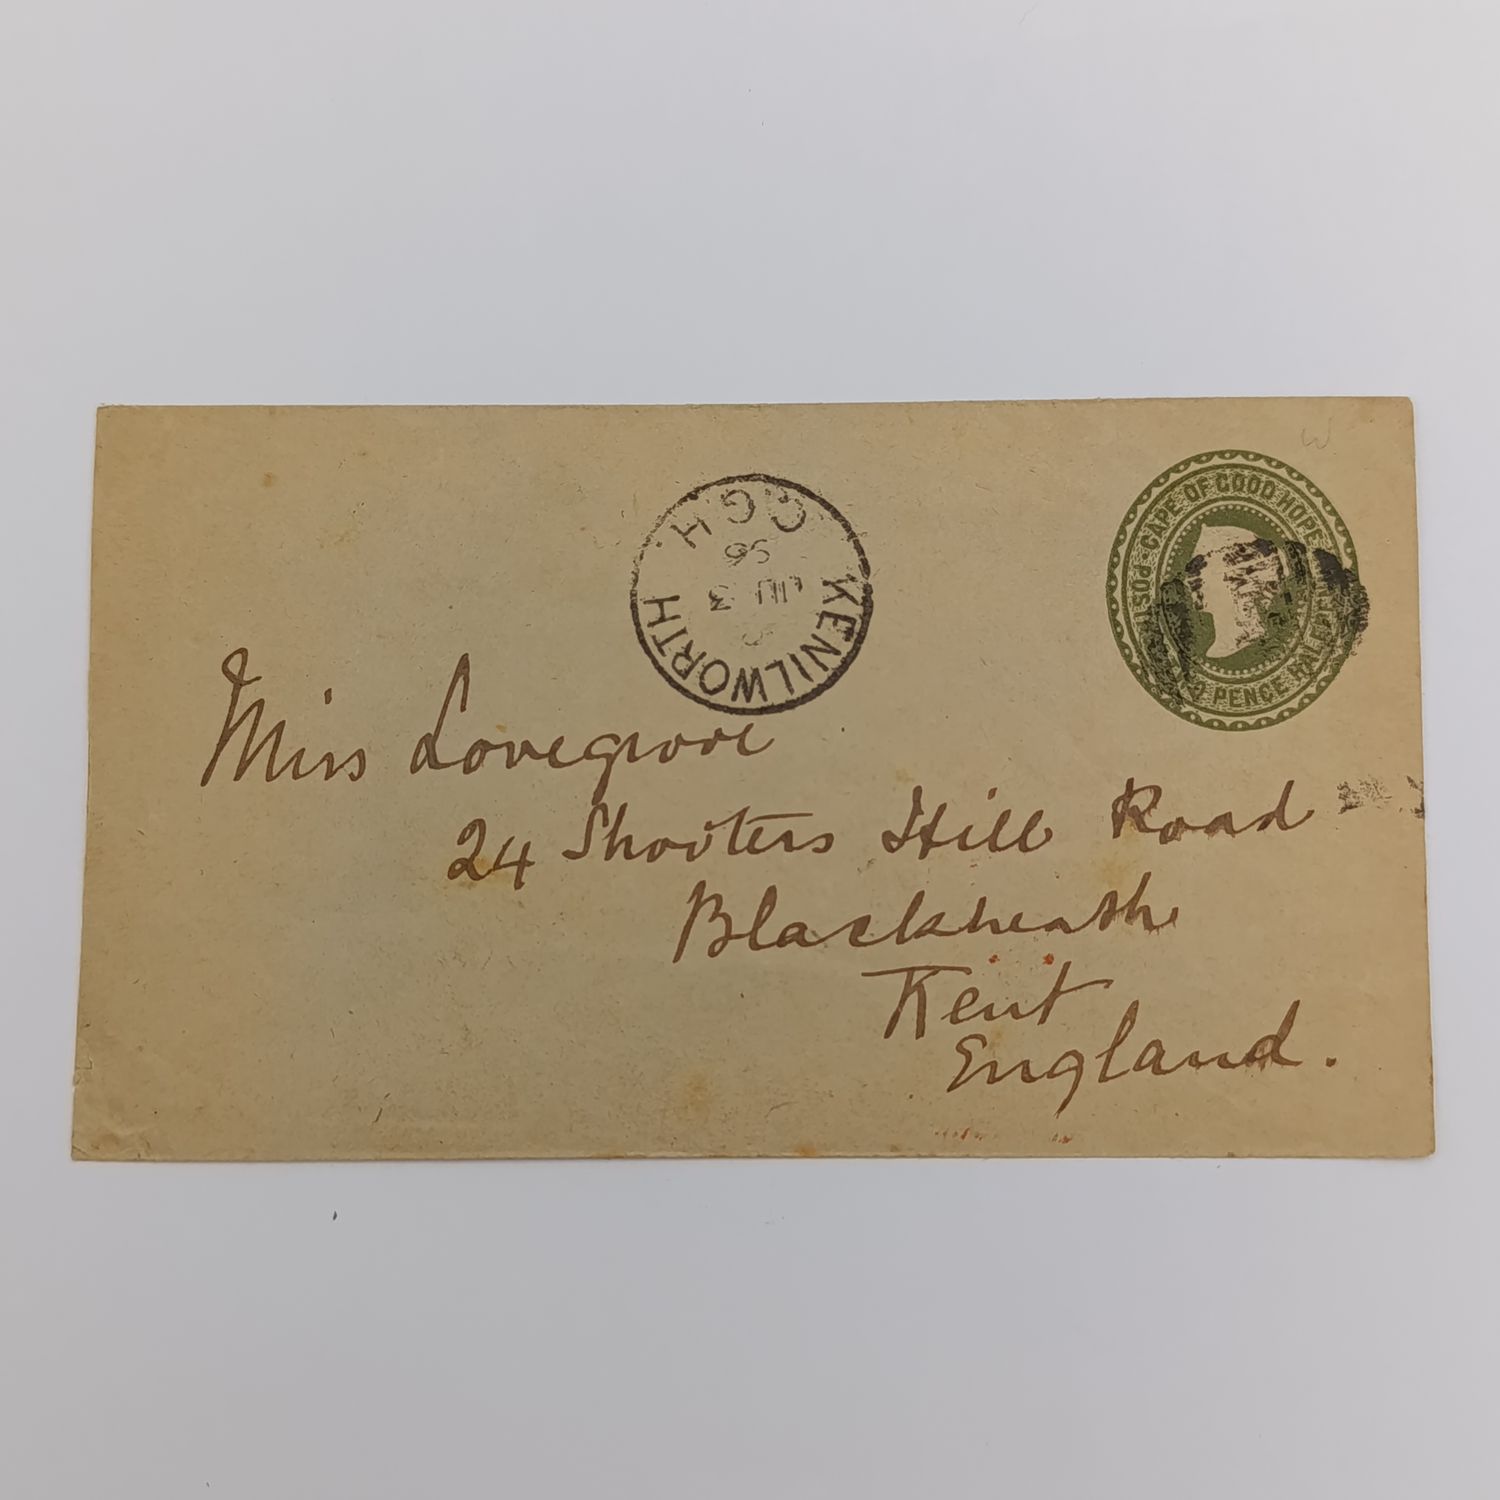 W
CAPE OF GOOD HOPE
PENCE
KENILWORTH
C.G.H.
JU 3
96
Miss Lovegrove
24 Shooters Hill Road
Blackheath
Kent
England.